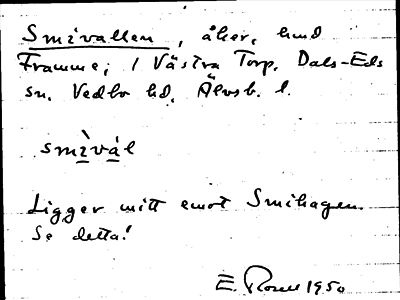 Smivallen, åker, hmd
Framme; / Västra Torp, Dals-Eds
sn. Vedbo hd, Älvsb. l.
smìvál
Ligger mitt emot Smihagen.
Se detta!
E. 1950